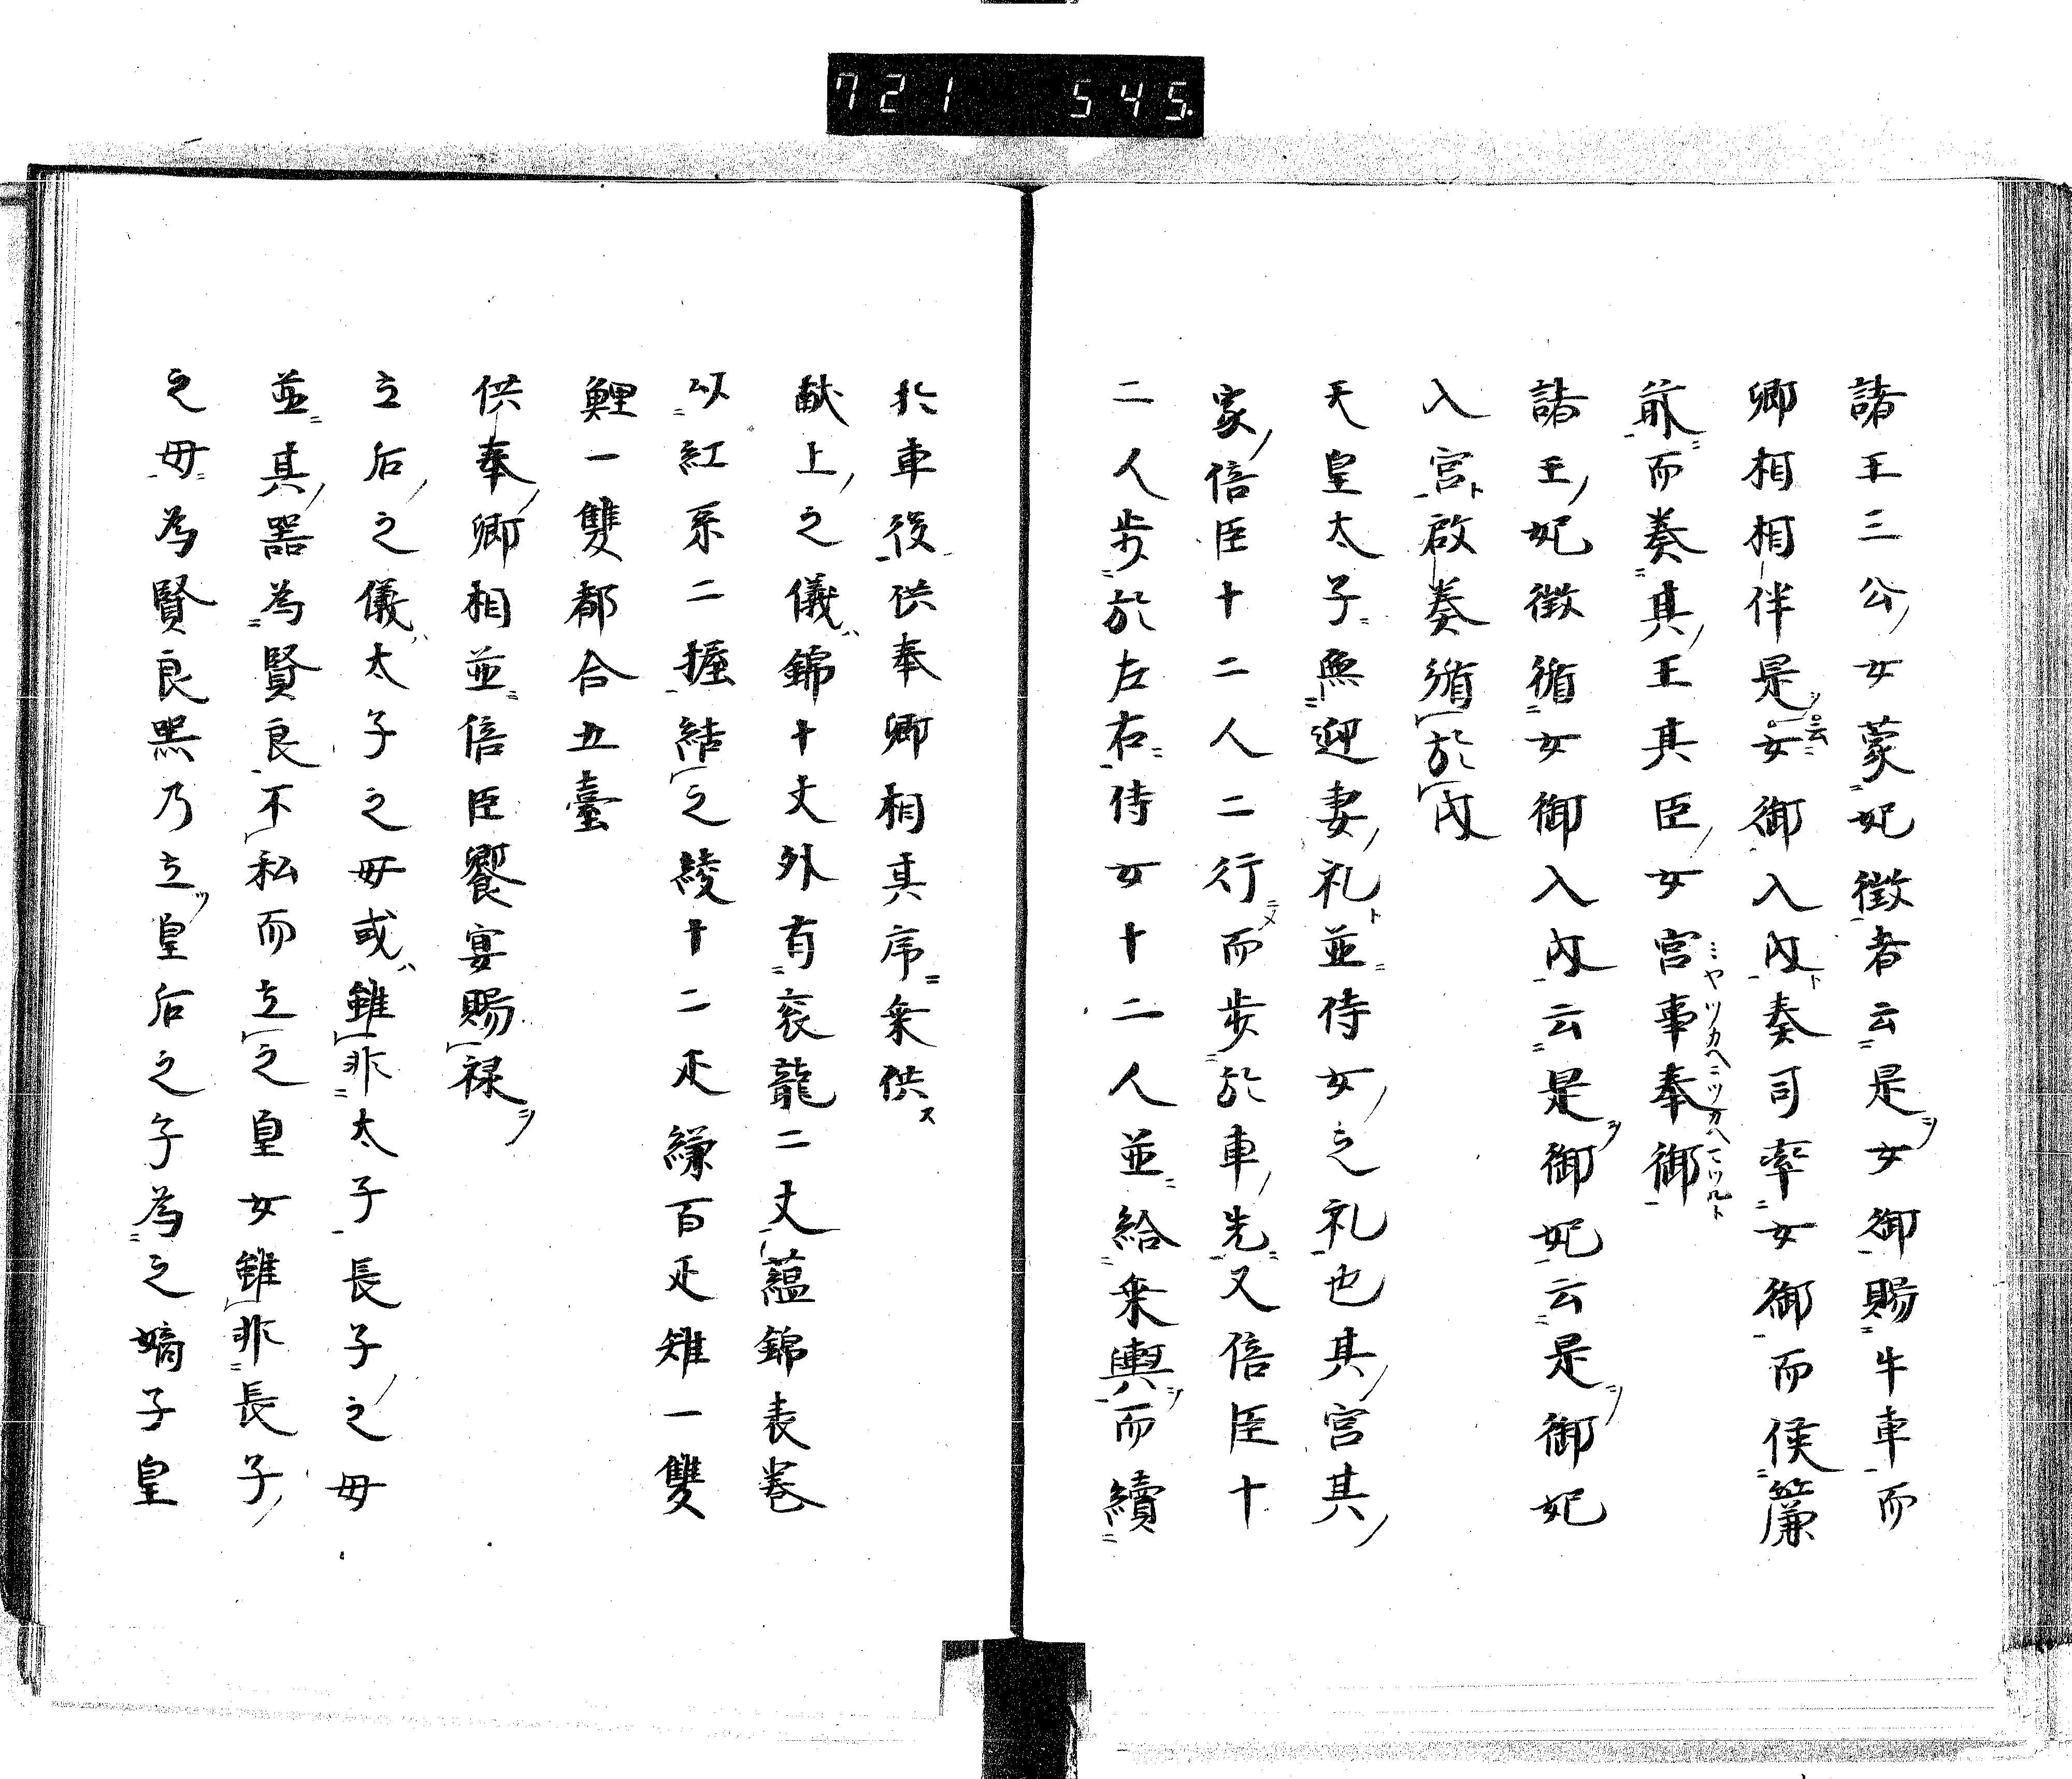 721 545
諸王三公女蒙妃徴者云是女御賜牛車而
卿相相伴是女御入内奏司率女御而候簾
前而奏其王其臣女宮事奉御
諸王妃徴循女御入内云是御妃云是御妃
入宮啟奏循於内
天皇太子無迎妻礼並侍女之礼也其宮其
家倍臣十二人二行而歩於車先又倍臣十
二人歩於左右侍女十二人並給乗輿而續
於車後供奉卿相其序乗供
献上之儀錦十丈外有袞龍二丈蘊錦表巻
以紅糸二握結之綾十二疋縑百疋雉一雙
鯉一雙都合五臺
供奉卿相並倍臣饗宴賜禄
立后之儀太子之母或雖非太子長子之母
並其器為賢良不私而立之皇女雖非長子
之母為賢良器乃立皇后之子為之嫡子皇